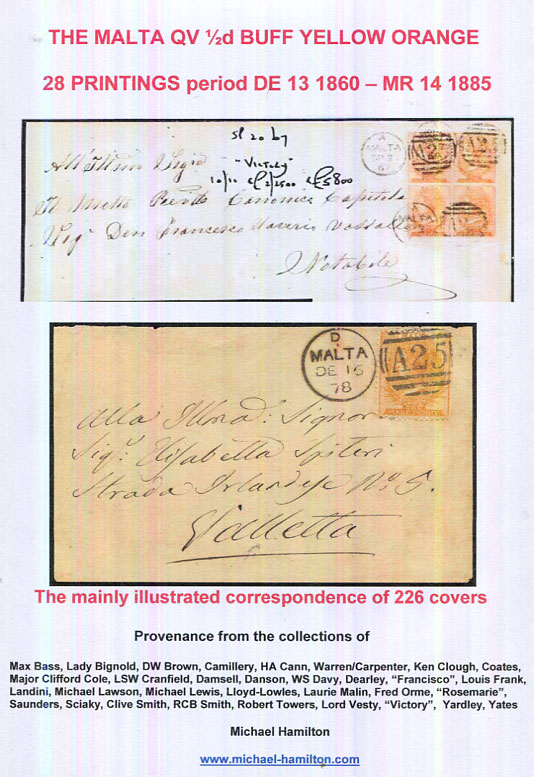 THE MALTA QV ½d BUFF YELLOW ORANGE
28 PRINTINGS period DE 13 1860 – MR 14 1885
A
MALTA
A25
A25
"VICTORY"
10/11
£5800
Canonico
Sigr Don Francesco Saverio Vassallo
Notabile
MALTA
D
MALTA
DE 16
78
A25
Alla Illma: Signora
Sigra Elisabetta Spiteri
Strada Irlandese No 5.
Valletta
The mainly illustrated correspondence of 226 covers
Provenance from the collections of
Max Bass, Lady Bignold, DW Brown, Camillery, HA Cann, Warren/Carpenter, Ken Clough, Coates,
Major Clifford Cole, LSW Cranfield, Damsell, Danson, WS Davy, Dearley, “Francisco”, Louis Frank,
Landini, Michael Lawson, Michael Lewis, Lloyd-Lowles, Laurie Malin, Fred Orme, “Rosemarie”,
Saunders, Sciaky, Clive Smith, RCB Smith, Robert Towers, Lord Vesty, “Victory”, Yardley, Yates
Michael Hamilton
www.michael-hamilton.com